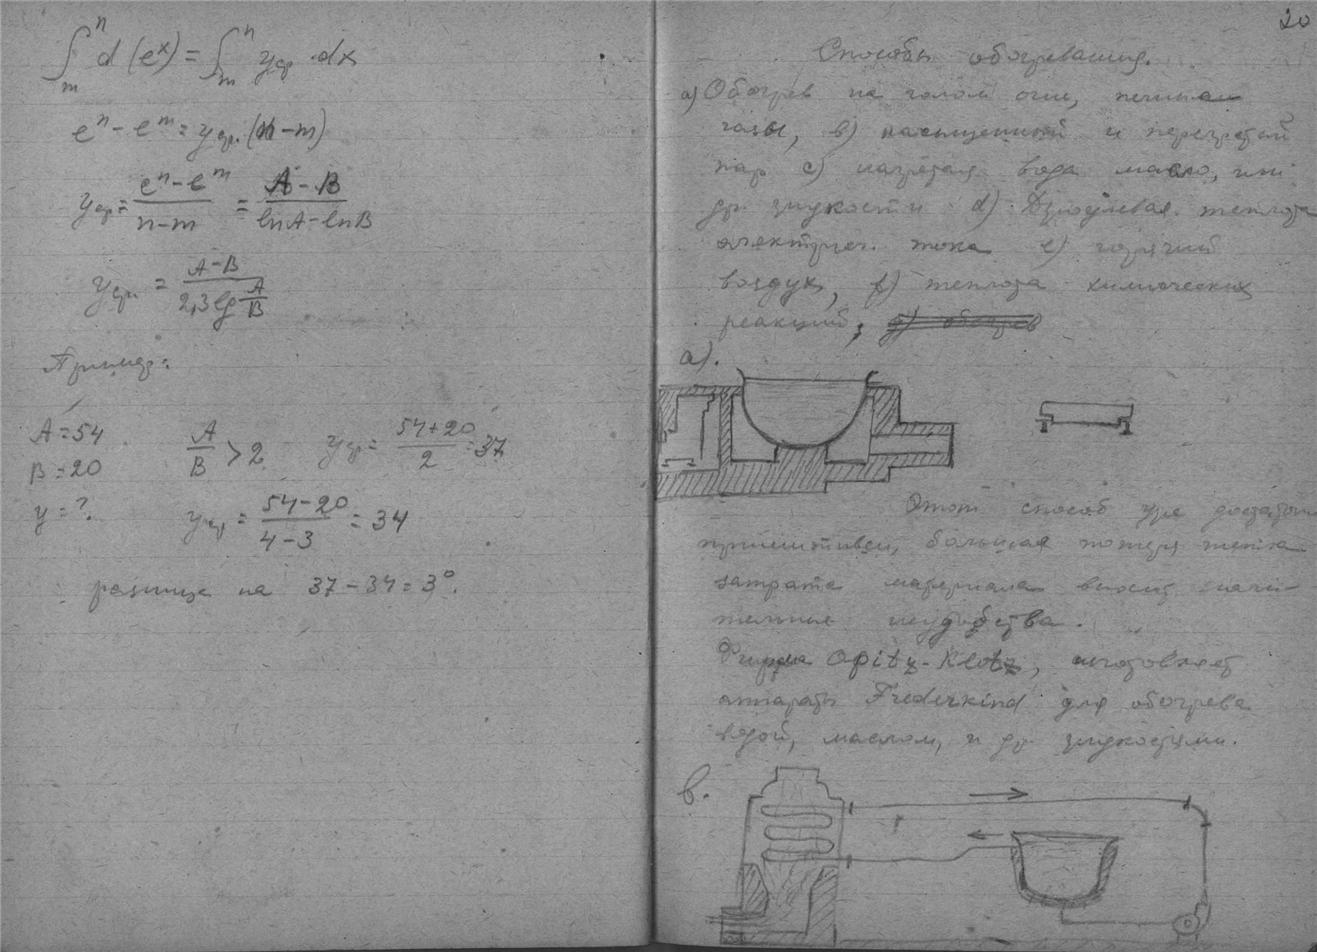 ∫ₘⁿ d(eˣ) = ∫ₘⁿ yср · dx
eⁿ − eᵐ = yср. (n − m)
yср = (eⁿ − eᵐ)/(n − m) = (A − B)/(lnA − lnB)
yср. = (A − B)/(2,3 lg A/B)
Пример:
A = 54
B = 20
A/B > 2
yср = (54+20)/2 = 37
y = ?
yср = (54−20)/(4−3) = 34
разница на 37 − 34 = 3°.
20
Способы обогревания.
a) Обогрев на голом огне, печные
газы, b) насыщенный и перегретый
пар c) нагретая вода масло, или
др. жидкости d) Джоулевая теплота
электрич. тока e) горячий
воздух, f) теплота химических
реакций, g) обогрев
a).
Этот способ уже достаточно
примитивен, большая потеря тепла
затрата материала вносит значи-
тельные неудобства.
Фирма Opitz-Klotz, изготовляет
аппараты Frederkind для обогрева
водой, маслом, и др. жидкостями.
в.